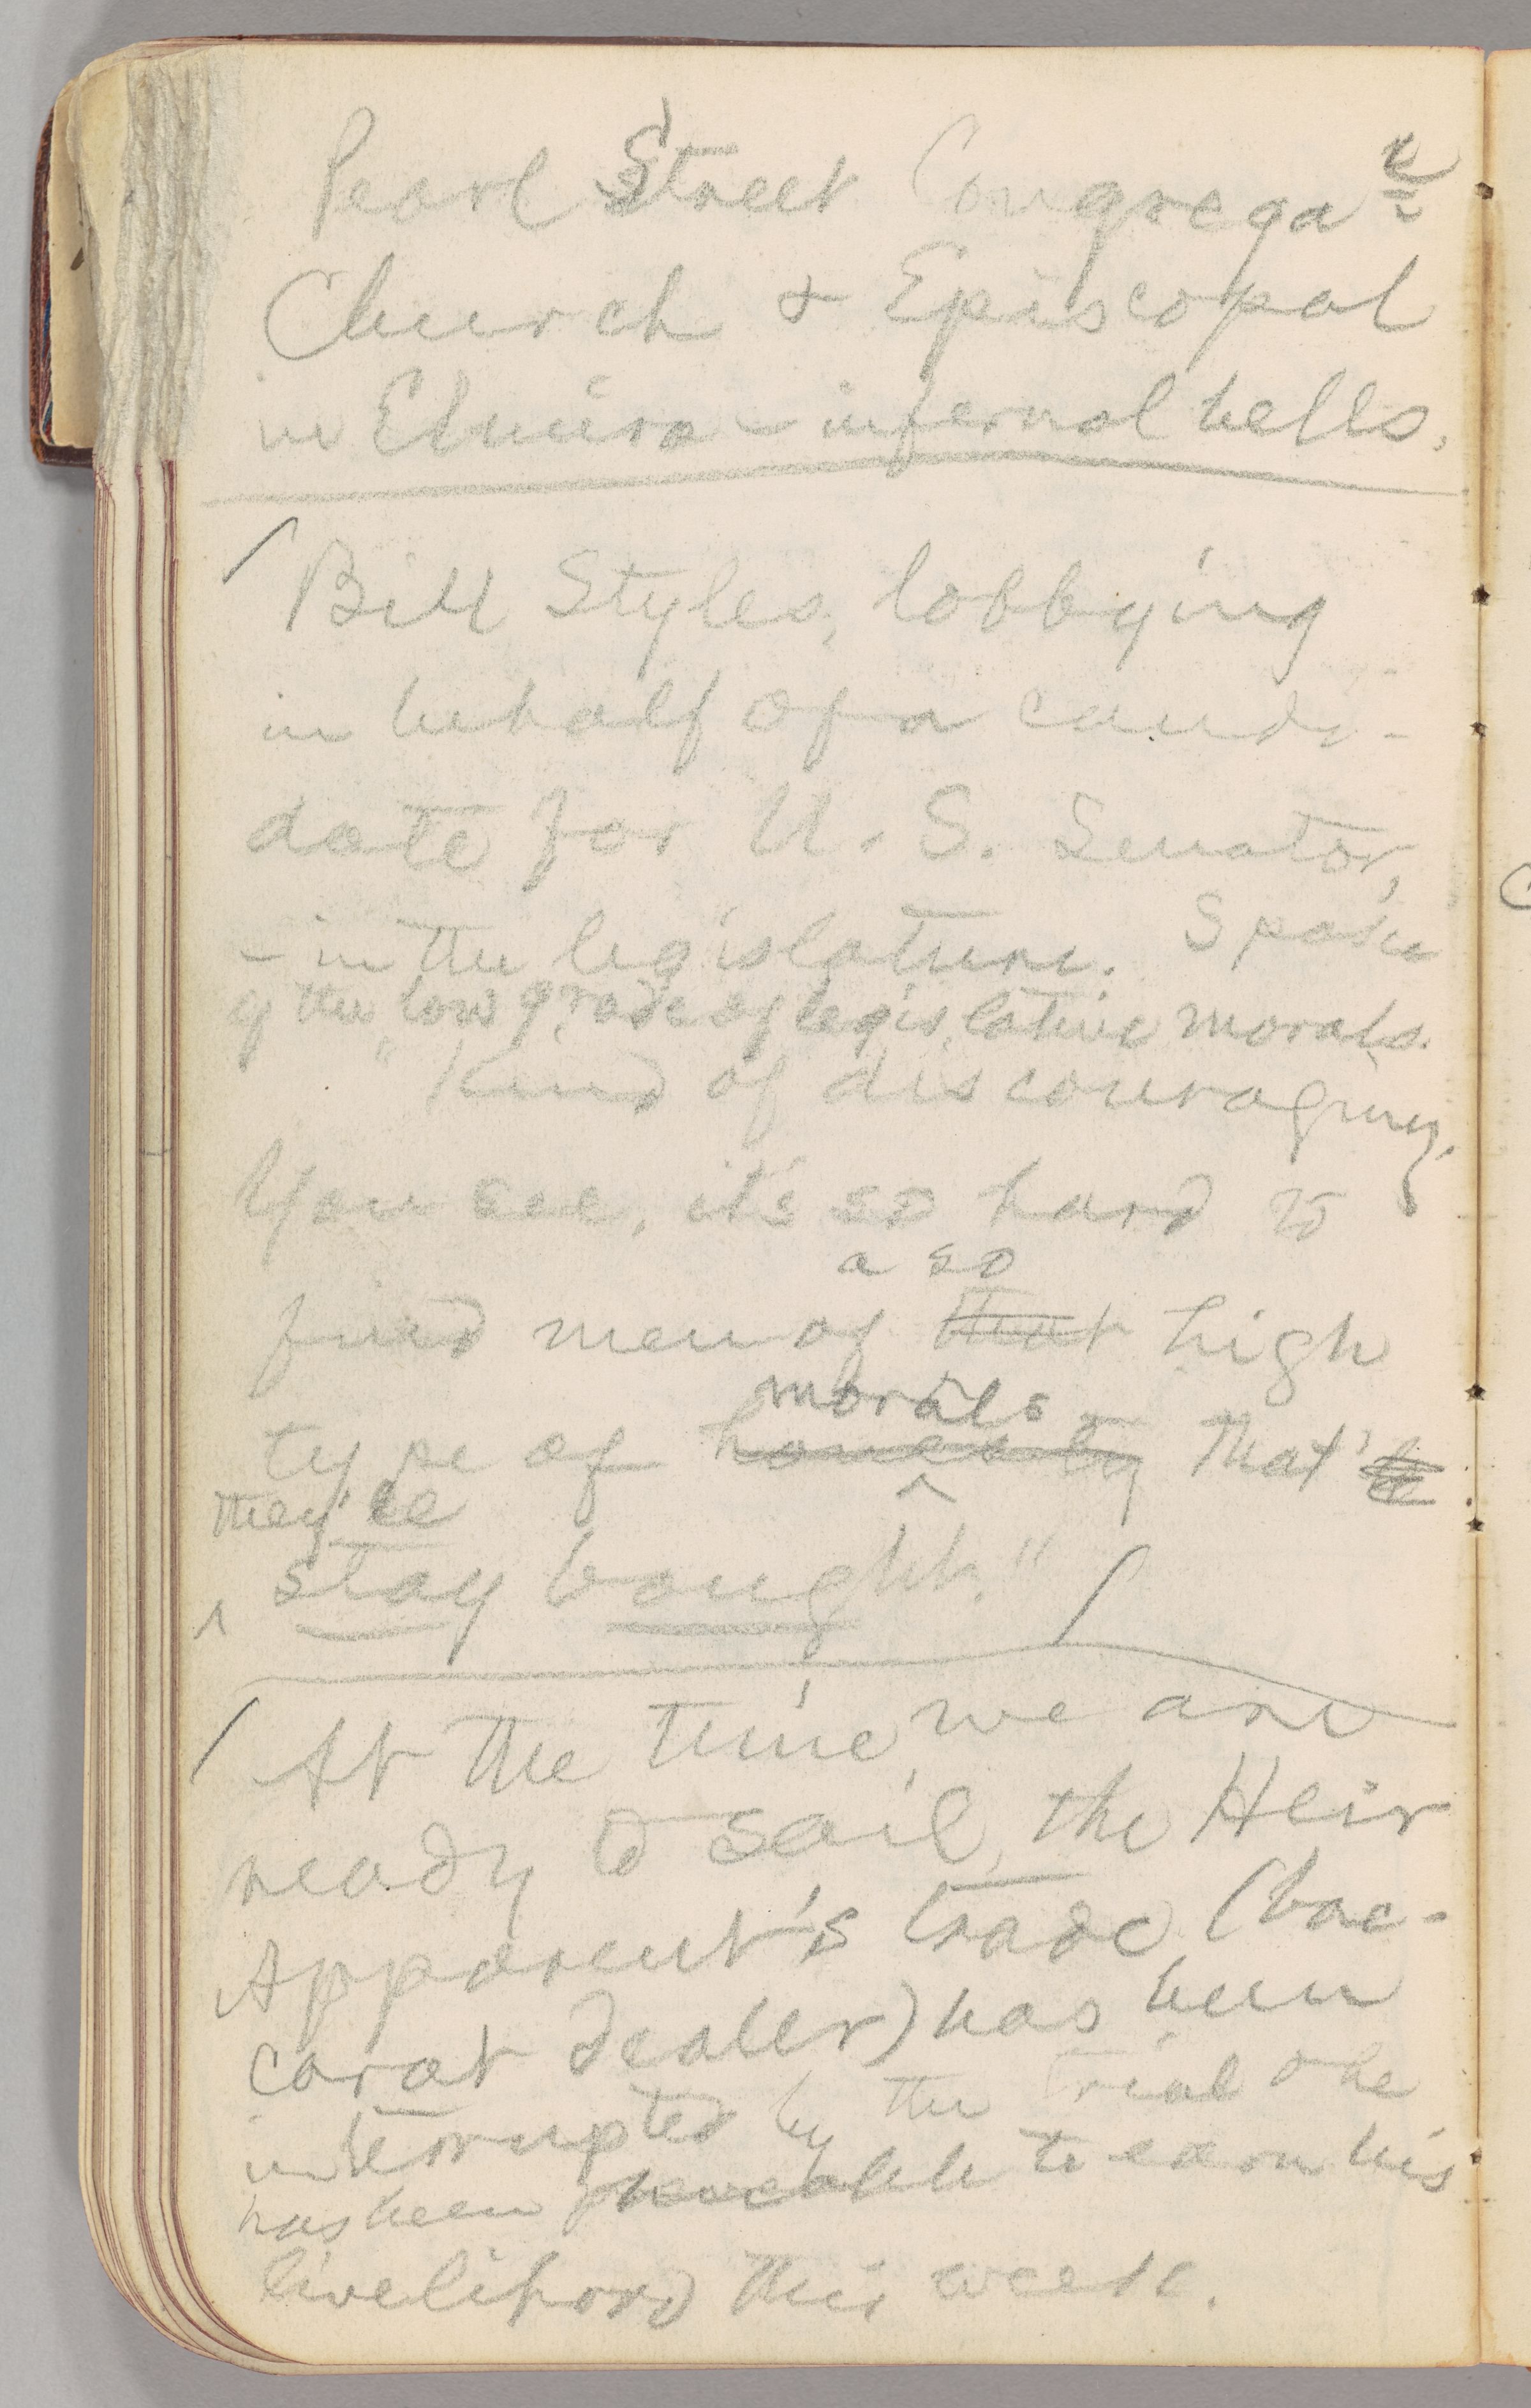 Pearl Street Congregal
Church & Episcopal
in Elmira – infernal bells.
Bill Styles, lobbying
in behalf of a candi-
date for U. S. Senator,
– in the legislature. Spoke
of the low grade of legislative morals.
"Kind of discouraging.
You see, it's so hard to
a so
find men of that high
morals
type of honesty that
they'll
stay bought."
At the time we are
ready to sail, the Heir
Apparent's trade (bac-
carat dealer) has been
interrupted by the trial & he
has been to earn his
livelihood this week.